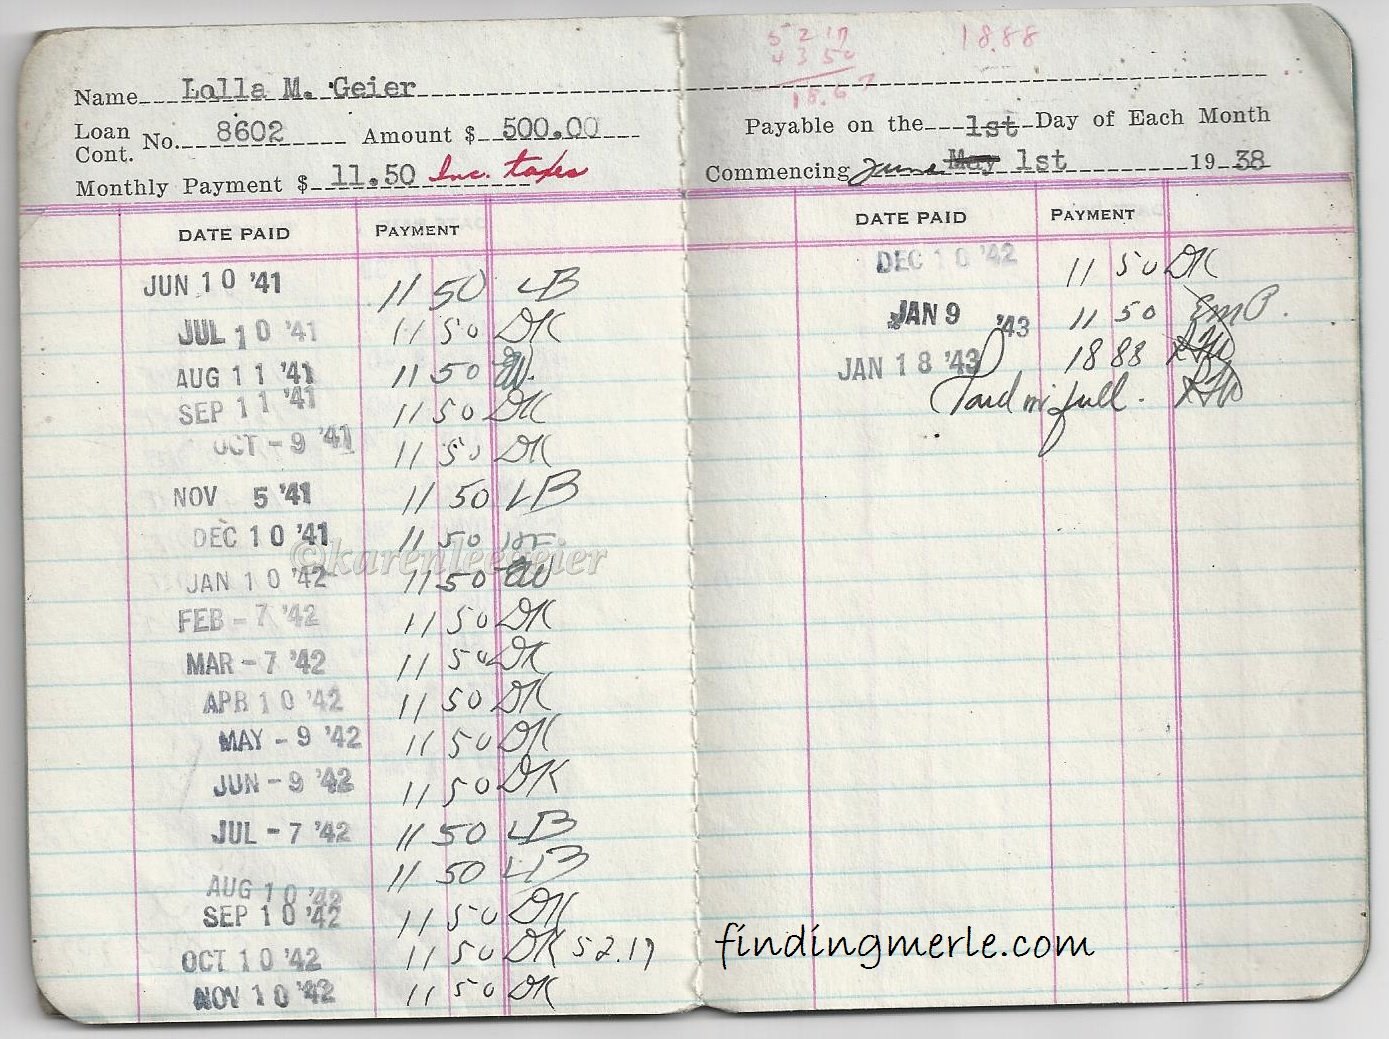 Name Lolla M. Geier
Loan Cont. No. 8602 Amount $ 500.00
Monthly Payment $ 11.50 Inc. taxes
DATE PAID PAYMENT
JUN 10 '41 11 50 LB
JUL 10 '41 11 50 DK
AUG 11 '41 11 50
SEP 11 '41 11 50 DK
OCT -9 '41 11 50 DK
NOV 5 '41 11 50 LB
DEC 10 '41 11 50
©karenleegeier
JAN 10 '42 11 50
FEB -7 '42 11 50 DK
MAR -7 '42 11 50 DK
APR 10 '42 11 50 DK
MAY -9 '42 11 50 DK
JUN -9 '42 11 50 DK
JUL -7 '42 11 50 LB
AUG 10 '42 11 50 LB
SEP 10 '42 11 50 DK
OCT 10 '42 11 50 DK 52.17
NOV 10 '42 11 50 DK
52 17 1888
43 50
Payable on the 1st Day of Each Month
Commencing June May 1st 19 38
DATE PAID PAYMENT
DEC 10 '42 11 50 DK
JAN 9 '43 11 50 EMP.
JAN 18 '43 18 88
Paid in full.
findingmerle.com